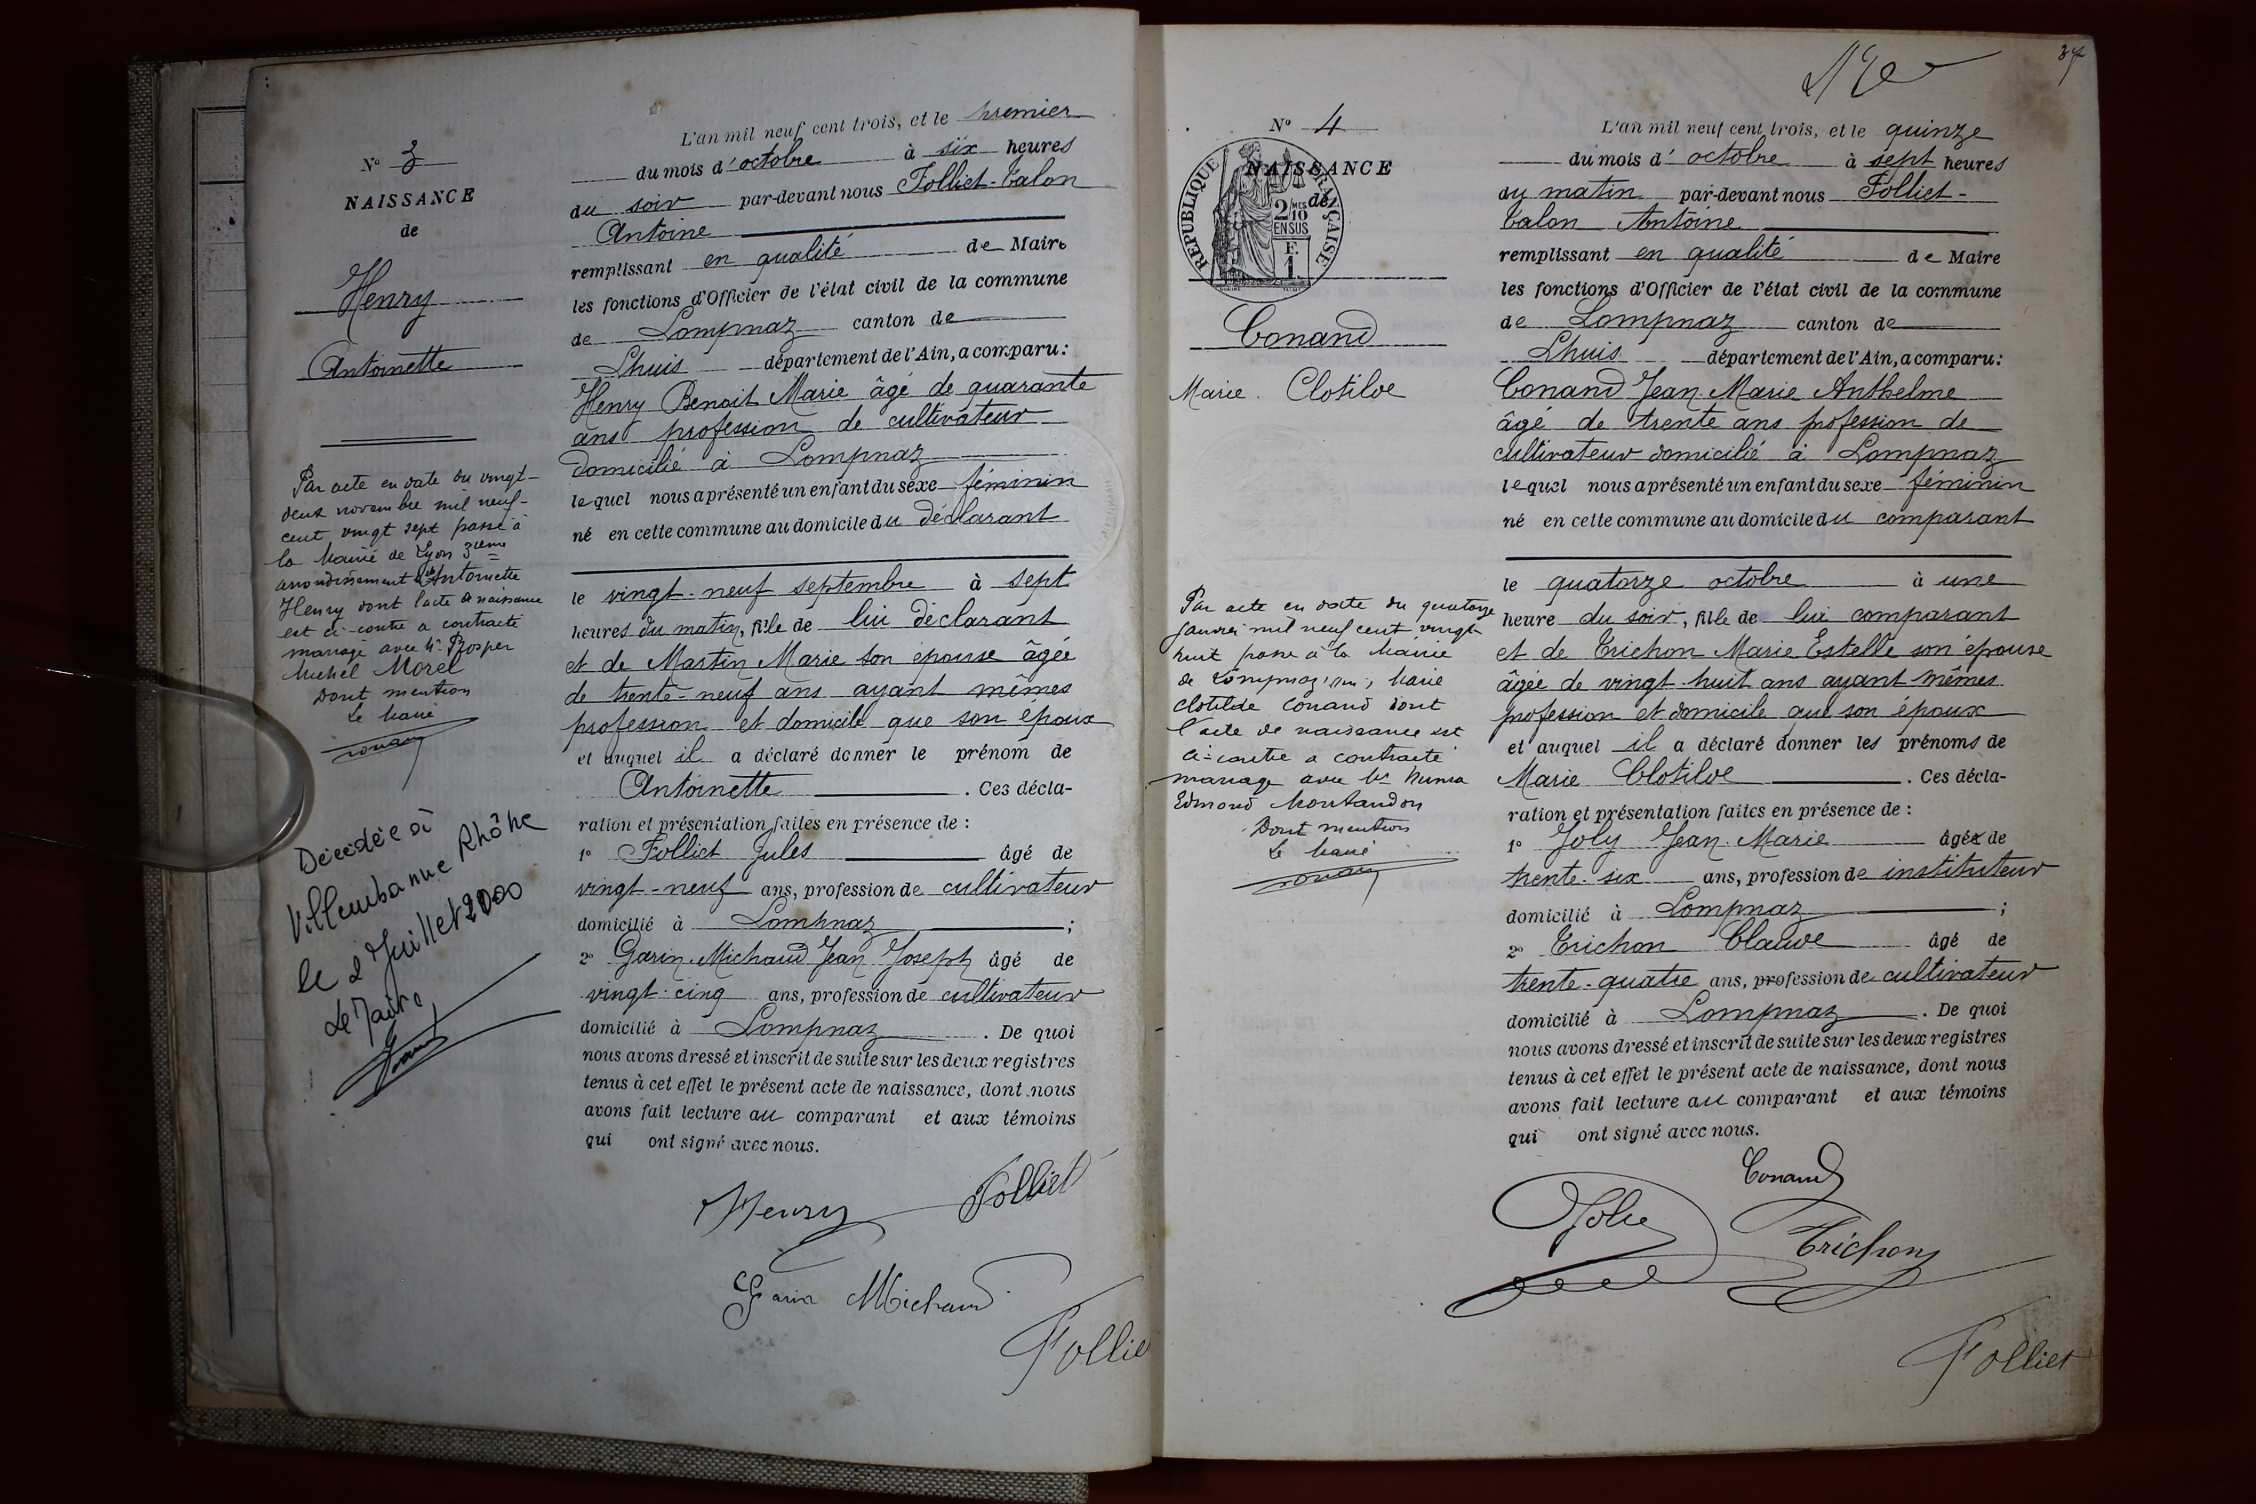 N° 3
NAISSANCE
de
Henry
Antoinette
Par acte en date du vingt-
deux novembre mil neuf-
cent vingt sept passé à
la Mairie de Lyon 3ième
arrondissement Antoinette
Henry dont l'acte de naissance
est ci-contre a contracté
mariage avec Mr Prosper
Michel Morel
Dont mention
Le Maire
Décédée à
Villeurbanne Rhône
le 2 Juillet 2000
Le Maire
L'an mil neuf cent trois, et le premier
du mois d'octobre à six heures
du soir par-devant nous Folliet-Calon
Antoine
remplissant en qualité de Maire
les fonctions d'Officier de l'état civil de la commune
de Lompnaz canton de
Lhuis département de l'Ain, a comparu:
Henry Benoit Marie âgé de quarante
ans profession de cultivateur
domicilié à Lompnaz
lequel nous a présenté un enfant du sexe féminin
né en cette commune au domicile du déclarant
le vingt-neuf septembre à sept
heures du matin, fille de lui déclarant
et de Martin Marie son épouse âgée
de trente-neuf ans ayant mêmes
profession et domicile que son époux
et auquel il a déclaré donner le prénom de
Antoinette. Ces décla-
ration et présentation faites en présence de :
1° Folliet Jules âgé de
vingt-neuf ans, profession de cultivateur
domicilié à Lompnaz ;
2° Garin-Michaud Jean Joseph âgé de
vingt-cinq ans, profession de cultivateur
domicilié à Lompnaz. De quoi
nous avons dressé et inscrit de suite sur les deux registres
tenus à cet effet le présent acte de naissance, dont nous
avons fait lecture au comparant et aux témoins
qui ont signé avec nous.
Henry Folliet
Garin Michaud
Folliet
37
N° 4
NAISSANCE
de
REPUBLIQUE FRANÇAISE
2/10 MES
EN SUS
F.
1.
Conand
Marie Clotilde
Par acte en date du quatorze
janvier mil neuf cent vingt
huit passé à la Mairie
de Lompnaz, Marie
Clotilde Conand dont
l'acte de naissance est
ci-contre a contracté
mariage avec Mr Numa
Edmond Montandon
Dont mention
Le Maire
L'an mil neuf cent trois, et le quinze
du mois d'octobre à sept heures
du matin par-devant nous Folliet-
Calon Antoine
remplissant en qualité de Maire
les fonctions d'Officier de l'état civil de la commune
de Lompnaz canton de
Lhuis département de l'Ain, a comparu:
Conand Jean Marie Anthelme
âgé de trente ans profession de
cultivateur domicilié à Lompnaz
lequel nous a présenté un enfant du sexe féminin
né en cette commune au domicile du comparant
le quatorze octobre à une
heure du soir, fille de lui comparant
et de Trichon Marie Estelle son épouse
âgée de vingt-huit ans ayant mêmes
profession et domicile que son époux
et auquel il a déclaré donner les prénoms de
Marie Clotilde. Ces décla-
ration et présentation faites en présence de :
1° Joly Jean-Marie âgé de
trente-six ans, profession de instituteur
domicilié à Lompnaz ;
2° Trichon Claude âgé de
trente-quatre ans, profession de cultivateur
domicilié à Lompnaz. De quoi
nous avons dressé et inscrit de suite sur les deux registres
tenus à cet effet le présent acte de naissance, dont nous
avons fait lecture au comparant et aux témoins
qui ont signé avec nous.
Conand
Joly Trichon
Folliet